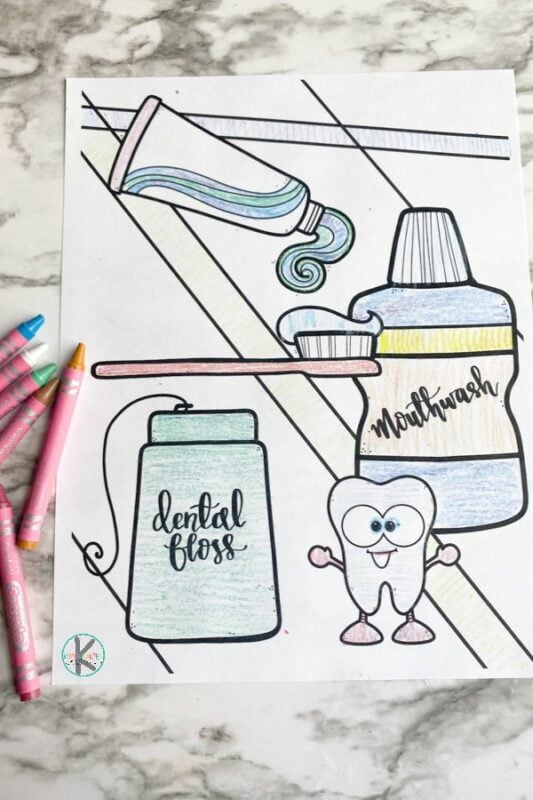 mouthwash
dental
floss